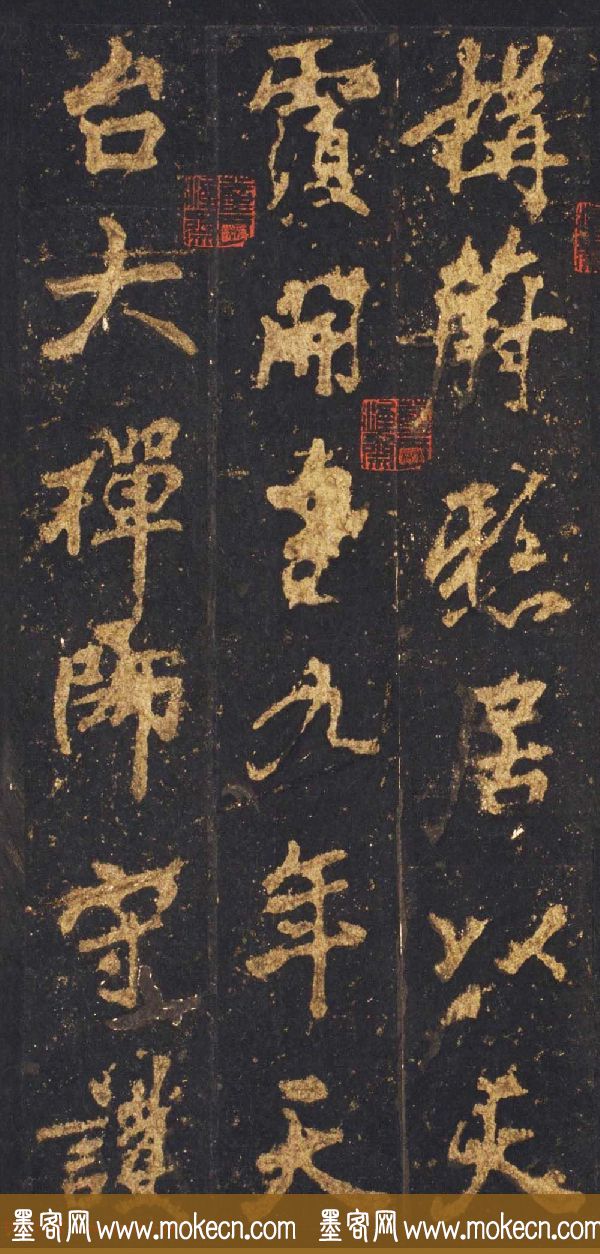 搆蔚居以夾
開皇九年天
台大禪師守護
墨客网 www.mokecn.com 墨客网 www.mokecn.com